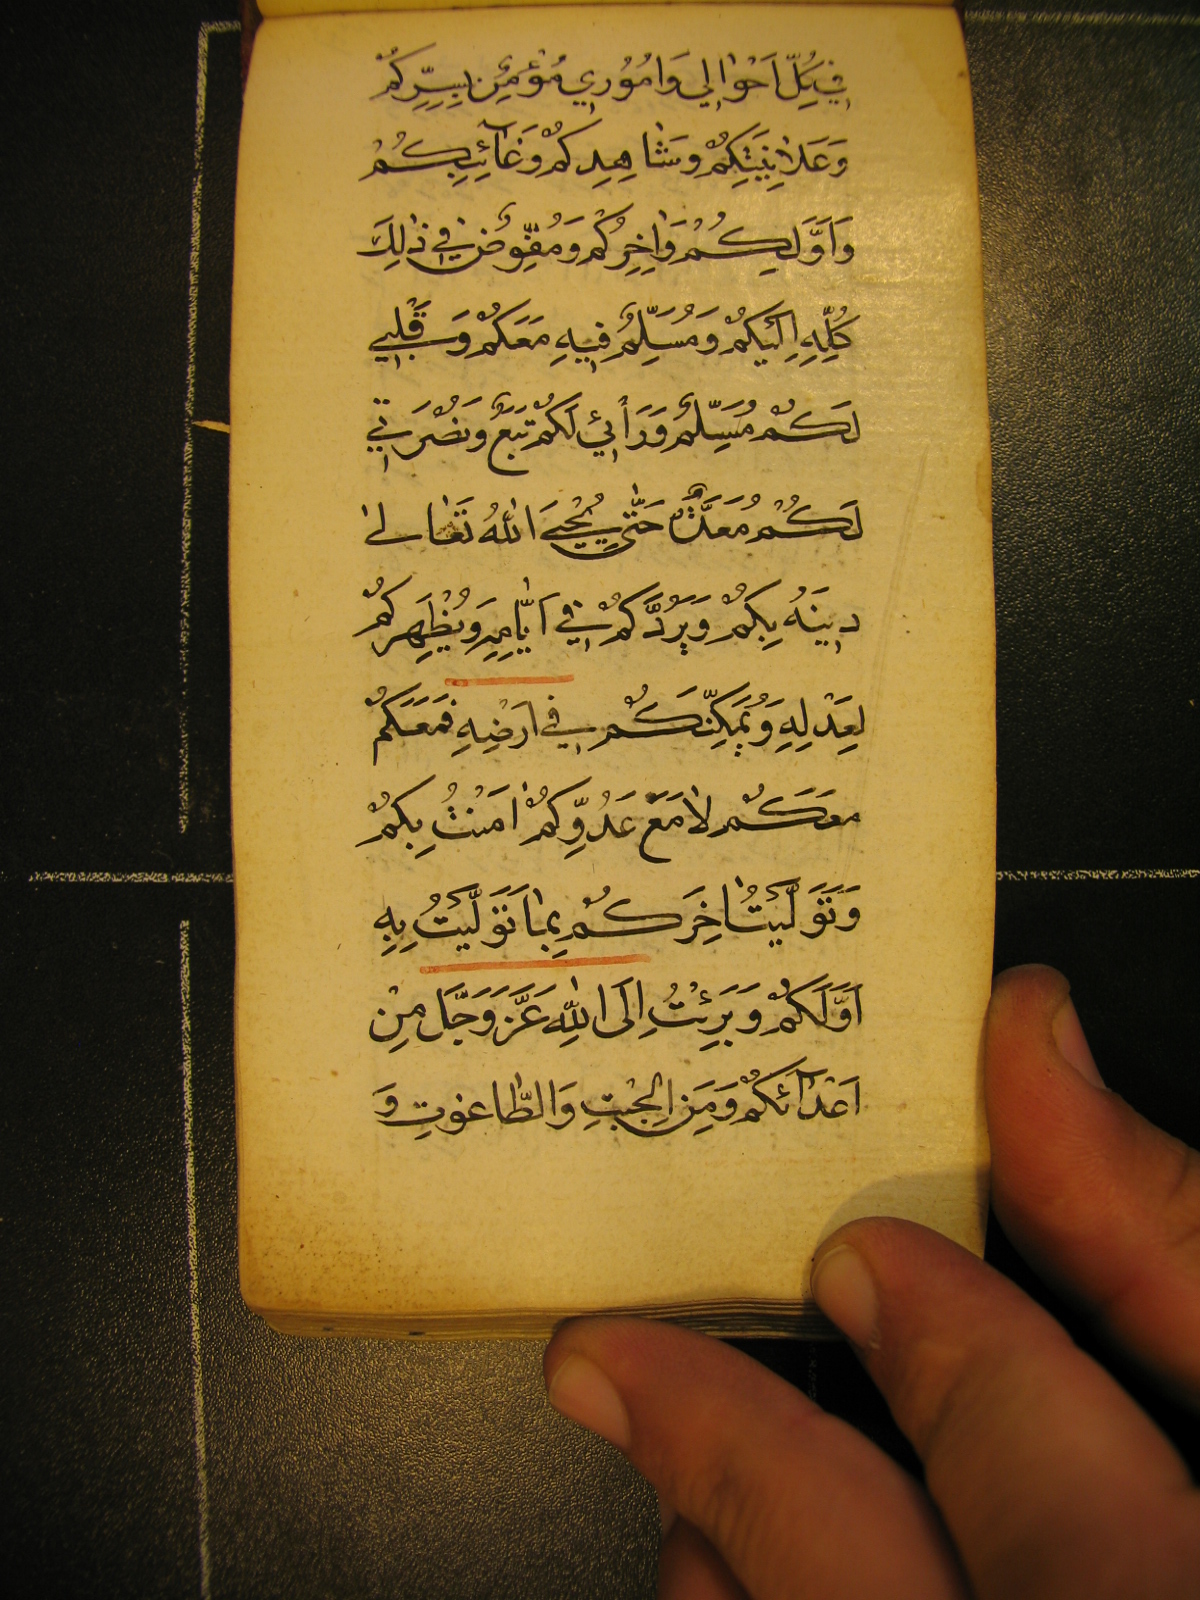 فِي كُلِّ اَحْوٰالِي وَاُمُوُرِي مُؤْمِنٌ بِسِرِّكُمْ
وَعَلاٰنِيَتِكُمْ وَشٰاهِدِكُمْ وَغٰآئِبِكُمْ
وَاَوَّلِكُمْ وَاٰخِرِكُمْ وَمُفَوِّضٌ فِي ذٰلِكَ
كُلِّهِ اِلَيْكُمْ وَمُسَلِّمٌ فِيهِ مَعَكُمْ وَقَلْبِي
لَكُمْ مُسَلِّمٌ وَرَأْيِي لَكُمْ تَبَعٌ وَنُصْرَتِي
لَكُمْ مُعَدَّةٌ حَتّٰى يُحْيِيَ اللهُ تَعٰالىٰ
دِينَهُ بِكُمْ وَيَرُدَّكُمْ فِي اَيّٰامِهِ وَيُظْهِرَكُمْ
لِعَدْلِهِ وَيُمَكِّنَكُمْ فِي اَرْضِهِ فَمَعَكُمْ
مَعَكُمْ لاٰ مَعَ عَدُوِّكُمْ اٰمَنْتُ بِكُمْ
وَتَوَلَّيْتُ اٰخِرَكُمْ بِمٰا تَوَلَّيْتُ بِهِ
اَوَّلَكُمْ وَبَرِئْتُ اِلَى اللهِ عَزَّ وَجَلَّ مِنْ
اَعْدٰآئِكُمْ وَمِنَ الْجِبْتِ وَالطّٰاغوُتِ وَ